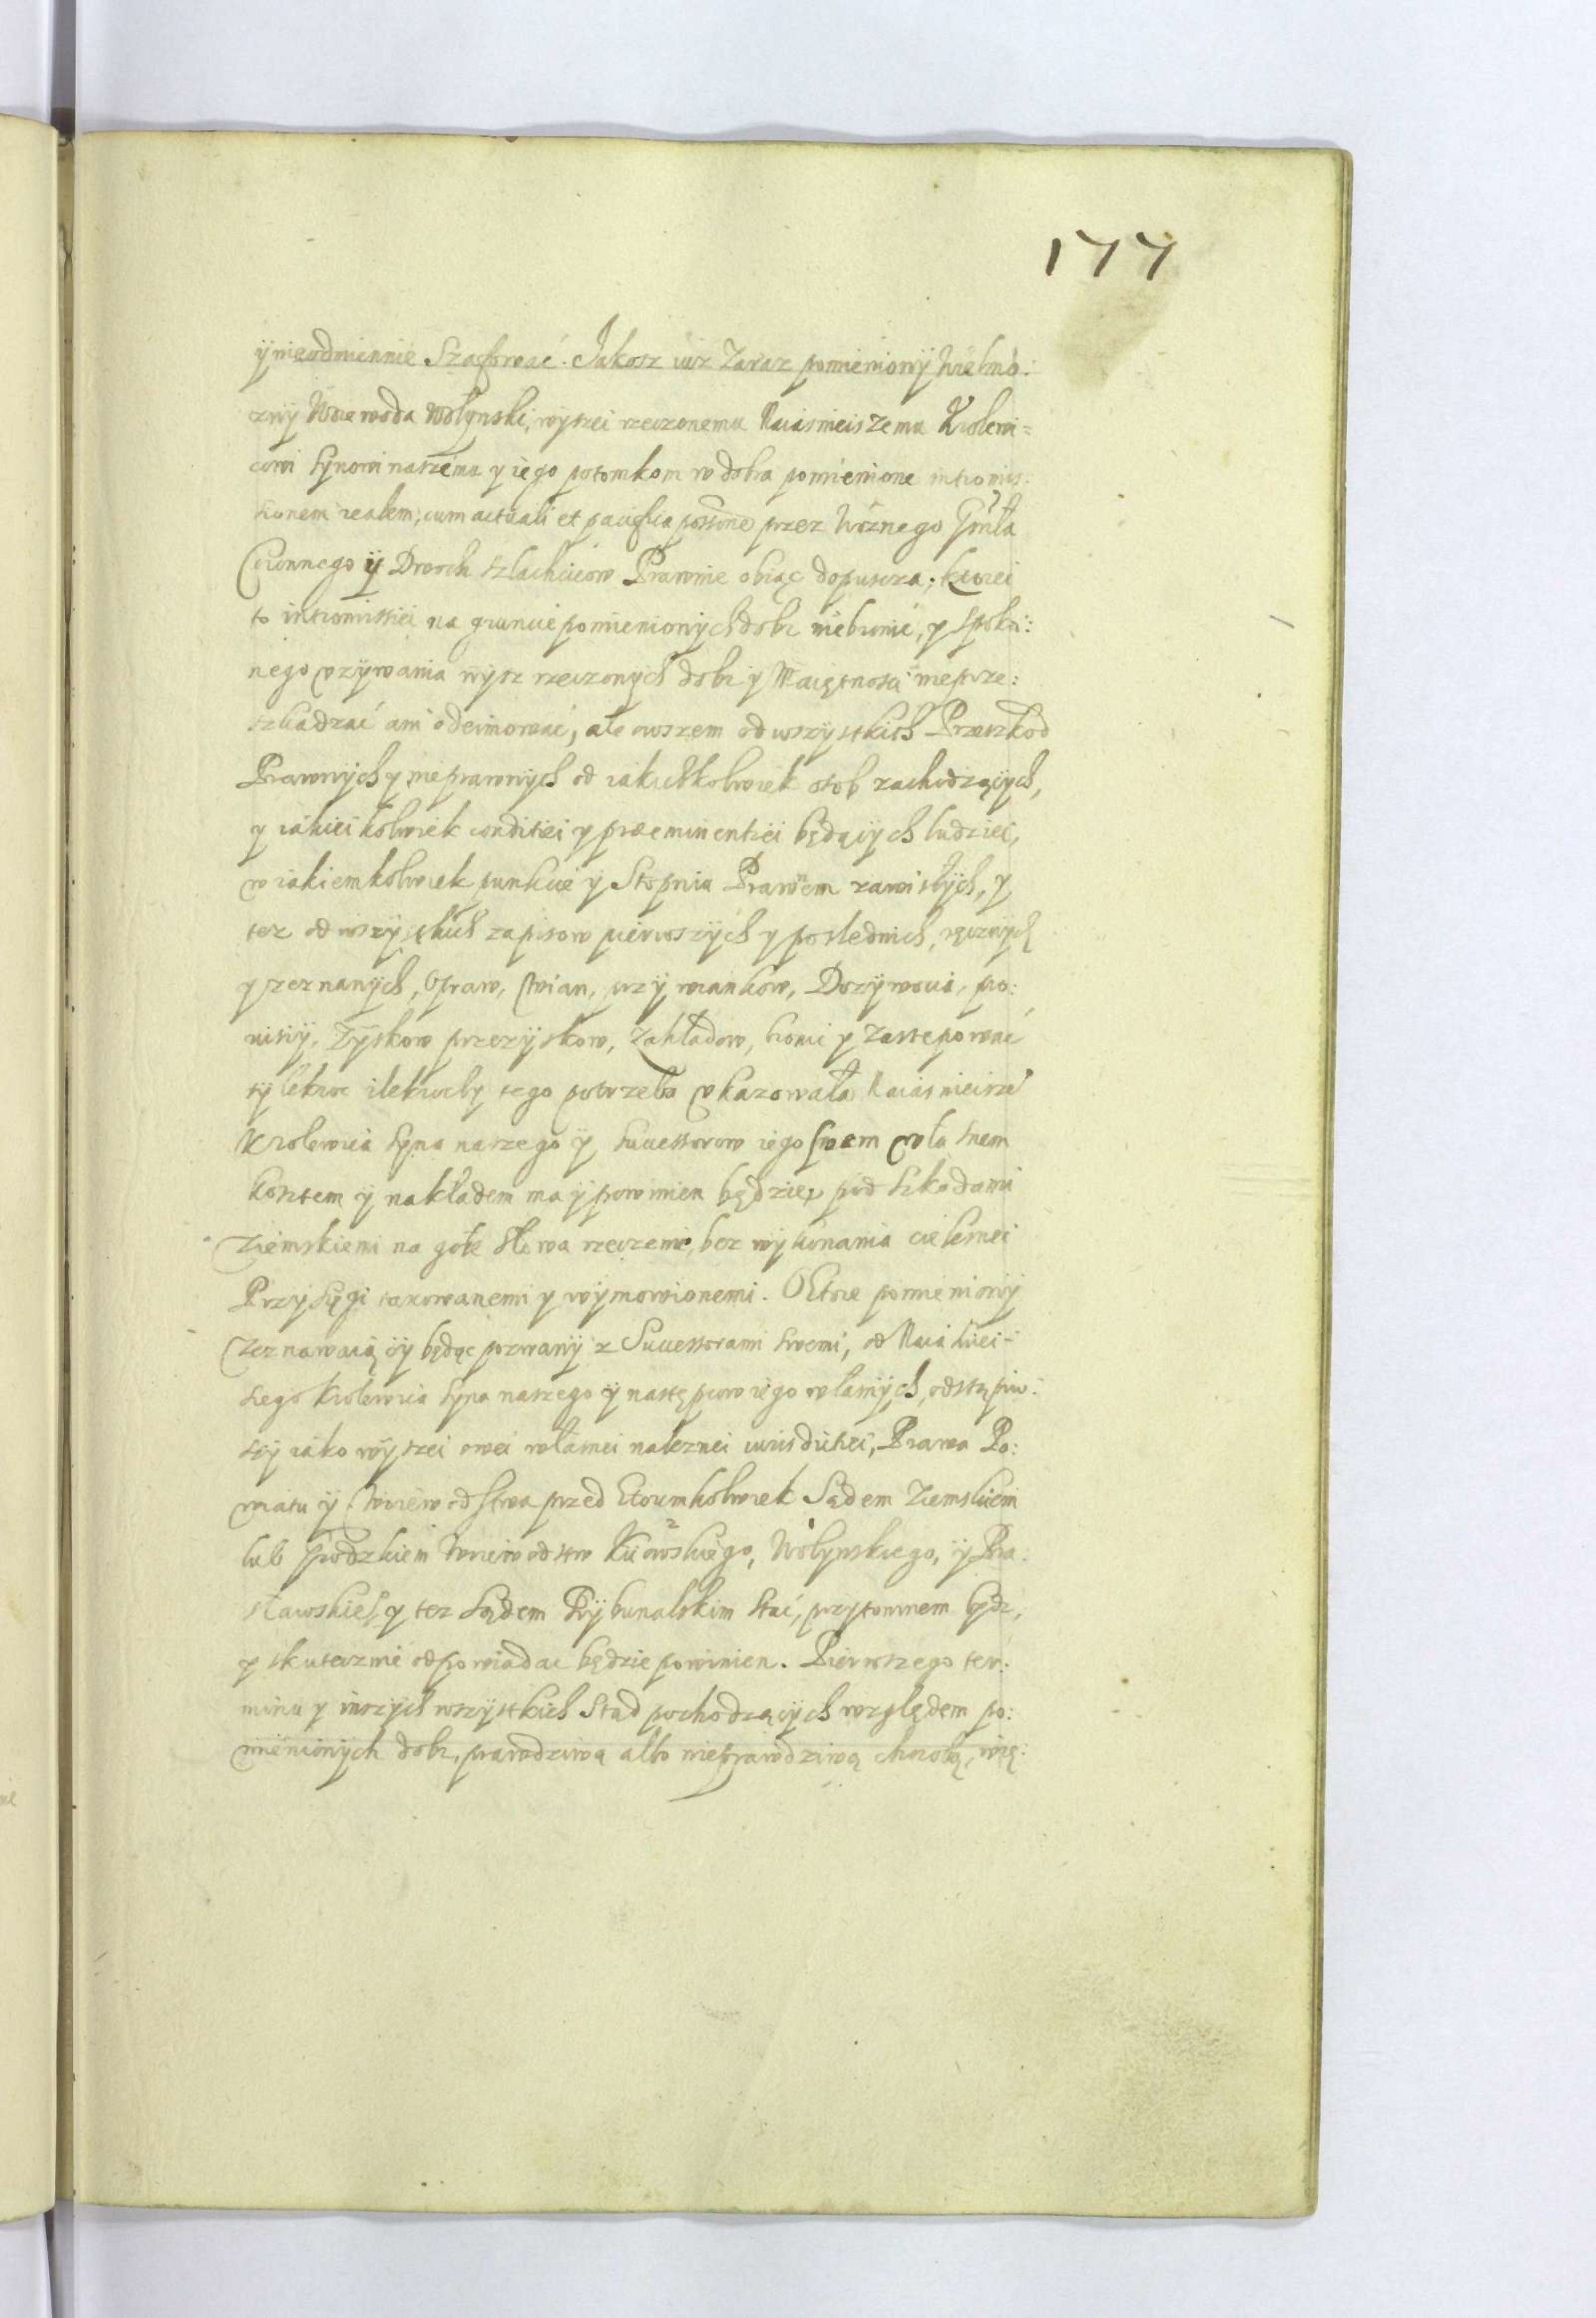 177
y nieodmiennie Szafować. Jakosz iuz Zaraz pomieniony Wielmo:
zny Woiewoda Wołynski, wyszei rzeczonemu Naiasnieiszemu Krolewi=
cowi Synowi naszemu y iego potomkom w dobra pomienione intromis:
sionem realem, cum actuali et pacifica possone przez Woznego Gnrła
Coronnego y Dwoch szlachcicow Prawnie obiąc dopuscza; ktorei
to intromissiei na gruncie pomienionych dobr niebronić, y spokoi:
nego vzywania wysz rzeczonych dobr y Maiętnosci nieprze:
szkadzać ani odeimować, ale owszem od wszystkich Przeszkod
Prawnych y nieprawnych od iakichkolwiek osob zachodzących,
y iakieikolwiek conditiei y præeminentiei będących ludziei,
w iakiemkolwiek punkcie y Stopniu Prawem zawisłych, y
tez od wszystkich zapisow pierwszych y poslednich, ręcznych
y zeznanych, Opraw, Wian, przywiankow, Dozywocia, po:
sisiy, Zyskow przezyskow, Zakładow, bronić y Zastępować
tylekroc ilekrocby tego potrzeba vkazowała Naiasnieisze
Krolewica Syna naszego y Successorow iego swem własnem
kosztem y nakładem ma y powinien będzie, pod szkodami
Ziemskiemi na gołe słowa rzeczenie, bez wykonania cielesnei
Przysięgi taxowanemi y wymowionemi. O ktore pomieniony
Zeznawaiący będąc pozwany z Successorami swemi, od Naiasniei-
szego Krolewica Syna naszego y nastęspcow iego własnych, odstąpiw:
szy iako wyszei swei własnei naleznei iurisdictiei, Prawa Po:
wiatu y Woiewodstwa przed ktorimkolwiek Sądem Ziemskiem
lub Grodzkiem Woiewodstw Kiiowskiego, Wołynskiego, y Bra:
sławskieg y tez Sądem Trybunalskim Stać, przytomnem bydz,
y skutecznie odpowiadac będzie powinien. Pierwszego ter:
minu y inszych wszystkich Stąd pochodzących względem po:
mienionych dobr, prawdziwą albo nieprawdziwą chorobą, wię: